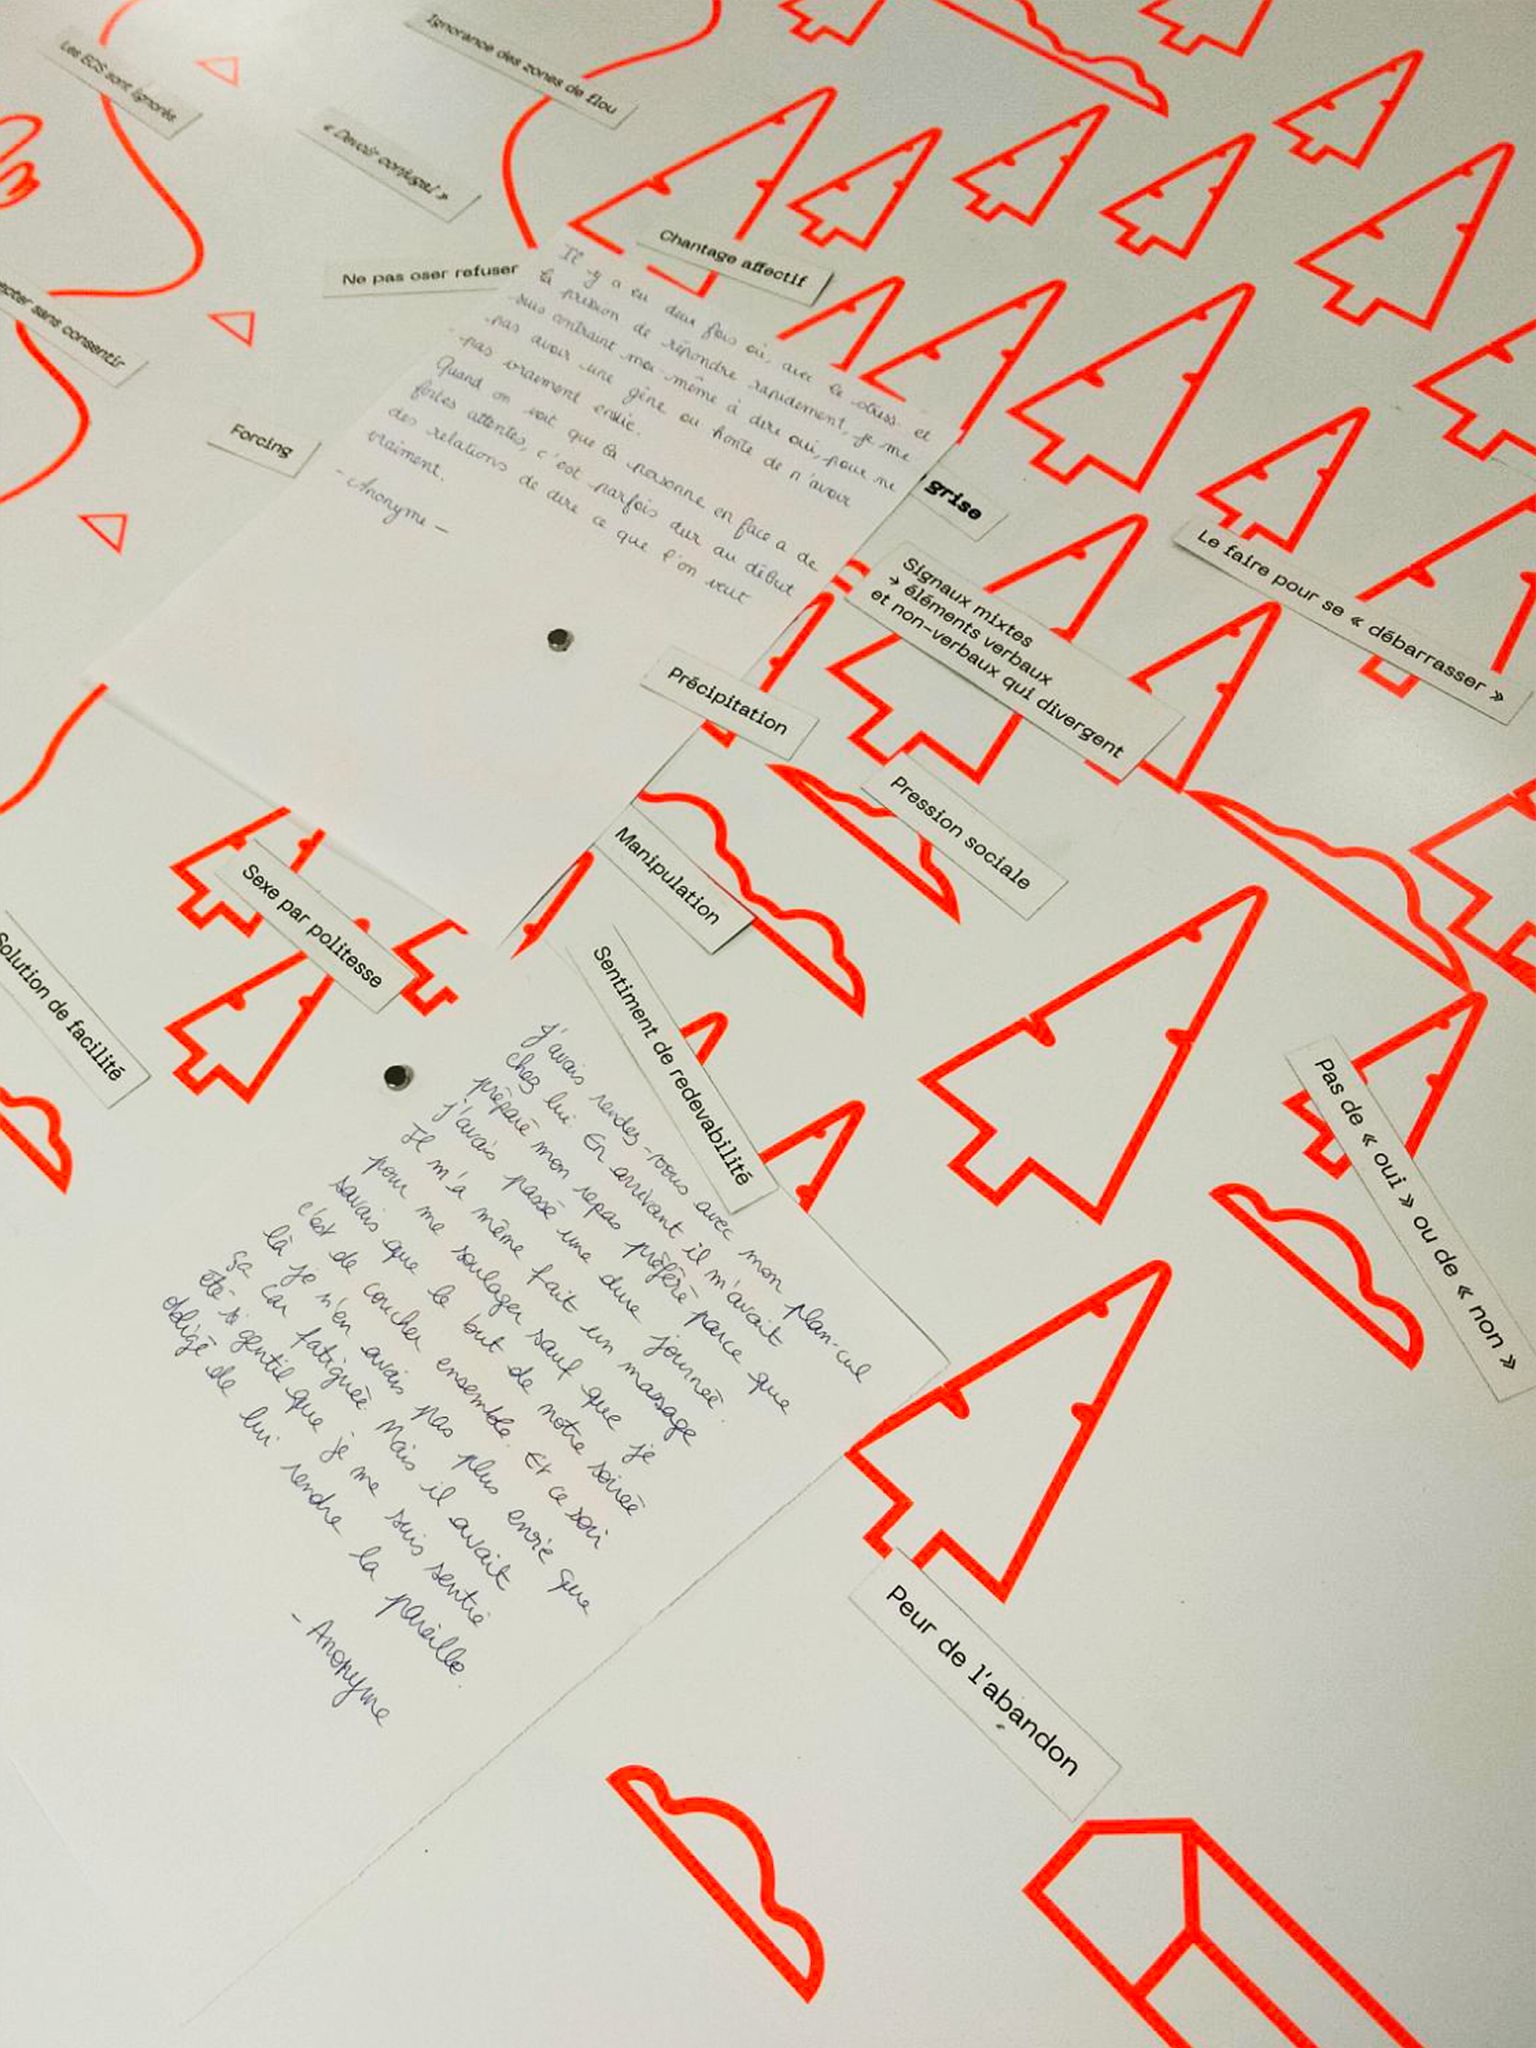 Ignorance des zones de flou
Les EDS sont ignorés
« Devoir conjugal »
Chantage affectif
Ne pas oser refuser
sans consentir
Forcing
Il y a eu deux fois où, avec le stress et
la pression de répondre rapidement, je me
suis contraint moi-même à dire oui, pour ne
pas avoir une gêne ou honte de n'avoir
pas vraiment envie.
Quand on voit que la personne en face a de
fortes attentes, c'est parfois dur au début
des relations de dire ce que l'on veut
vraiment.
- Anonyme -
grise
Le faire pour se « débarrasser »
Signaux mixtes
→ éléments verbaux
et non-verbaux qui divergent
Précipitation
Pression sociale
Manipulation
Sexe par politesse
Solution de facilité
Sentiment de redevabilité
Pas de « oui » ou de « non »
J'avais rendez-vous avec mon plan-cul
chez lui. En arrivant il m'avait
préparé mon repas préféré parce que
j'avais passé une dure journée.
Il m'a même fait un massage
pour me soulager sauf que je
savais que le but de notre soirée
c'est de coucher ensemble. Et ce soir
là je n'en avais pas plus envie que
ça car fatiguée Mais il avait
été si gentil que je me suis sentie
obligé de lui rendre la pareille.
- Anonyme
Peur de l'abandon